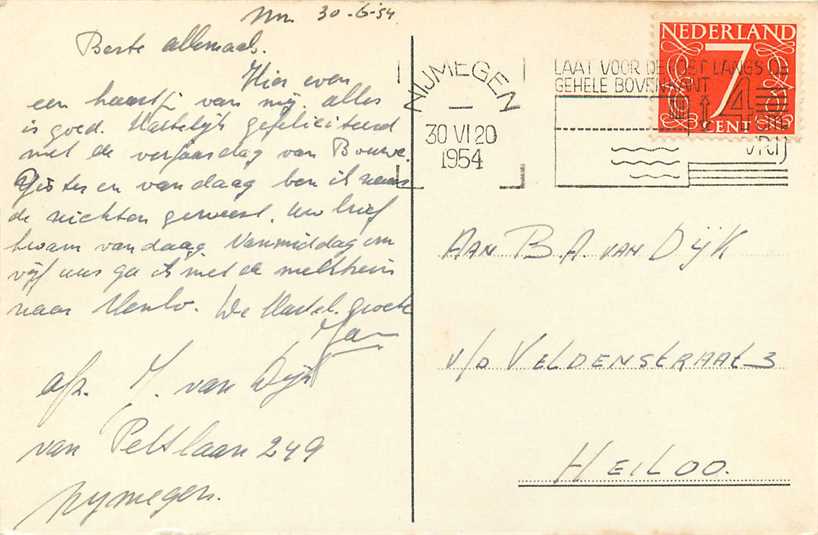 Nm. 30-6-'54
Beste allemaal.
Hier even
een kaartje van mij. alles
is goed. Hartelijk gefeliciteerd
met de verjaardag van Bouwe.
Gisteren en vandaag ben ik naar
de nichten geweest. Uw brief
kwam vandaag. Vanmiddag om
vijf uur ga ik met de
naar Venlo. De Hartel. groete
Jan
afz. J. van Dijk
van Peltlaan 249
Nijmegen.
NEDERLAND
7
CENT
NIJMEGEN
30 VI 20
1954
LAAT VOOR DE POST LANGS DE
GEHELE BOVENKANT
4 cm
VRIJ
AAN B.A. VAN DIJK
V/D VELDENSTRAAT 3
HEILOO.